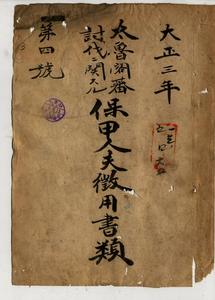 大正三年
太魯閣蕃
討伐ニ関スル
保甲人夫徴用書類
第四號